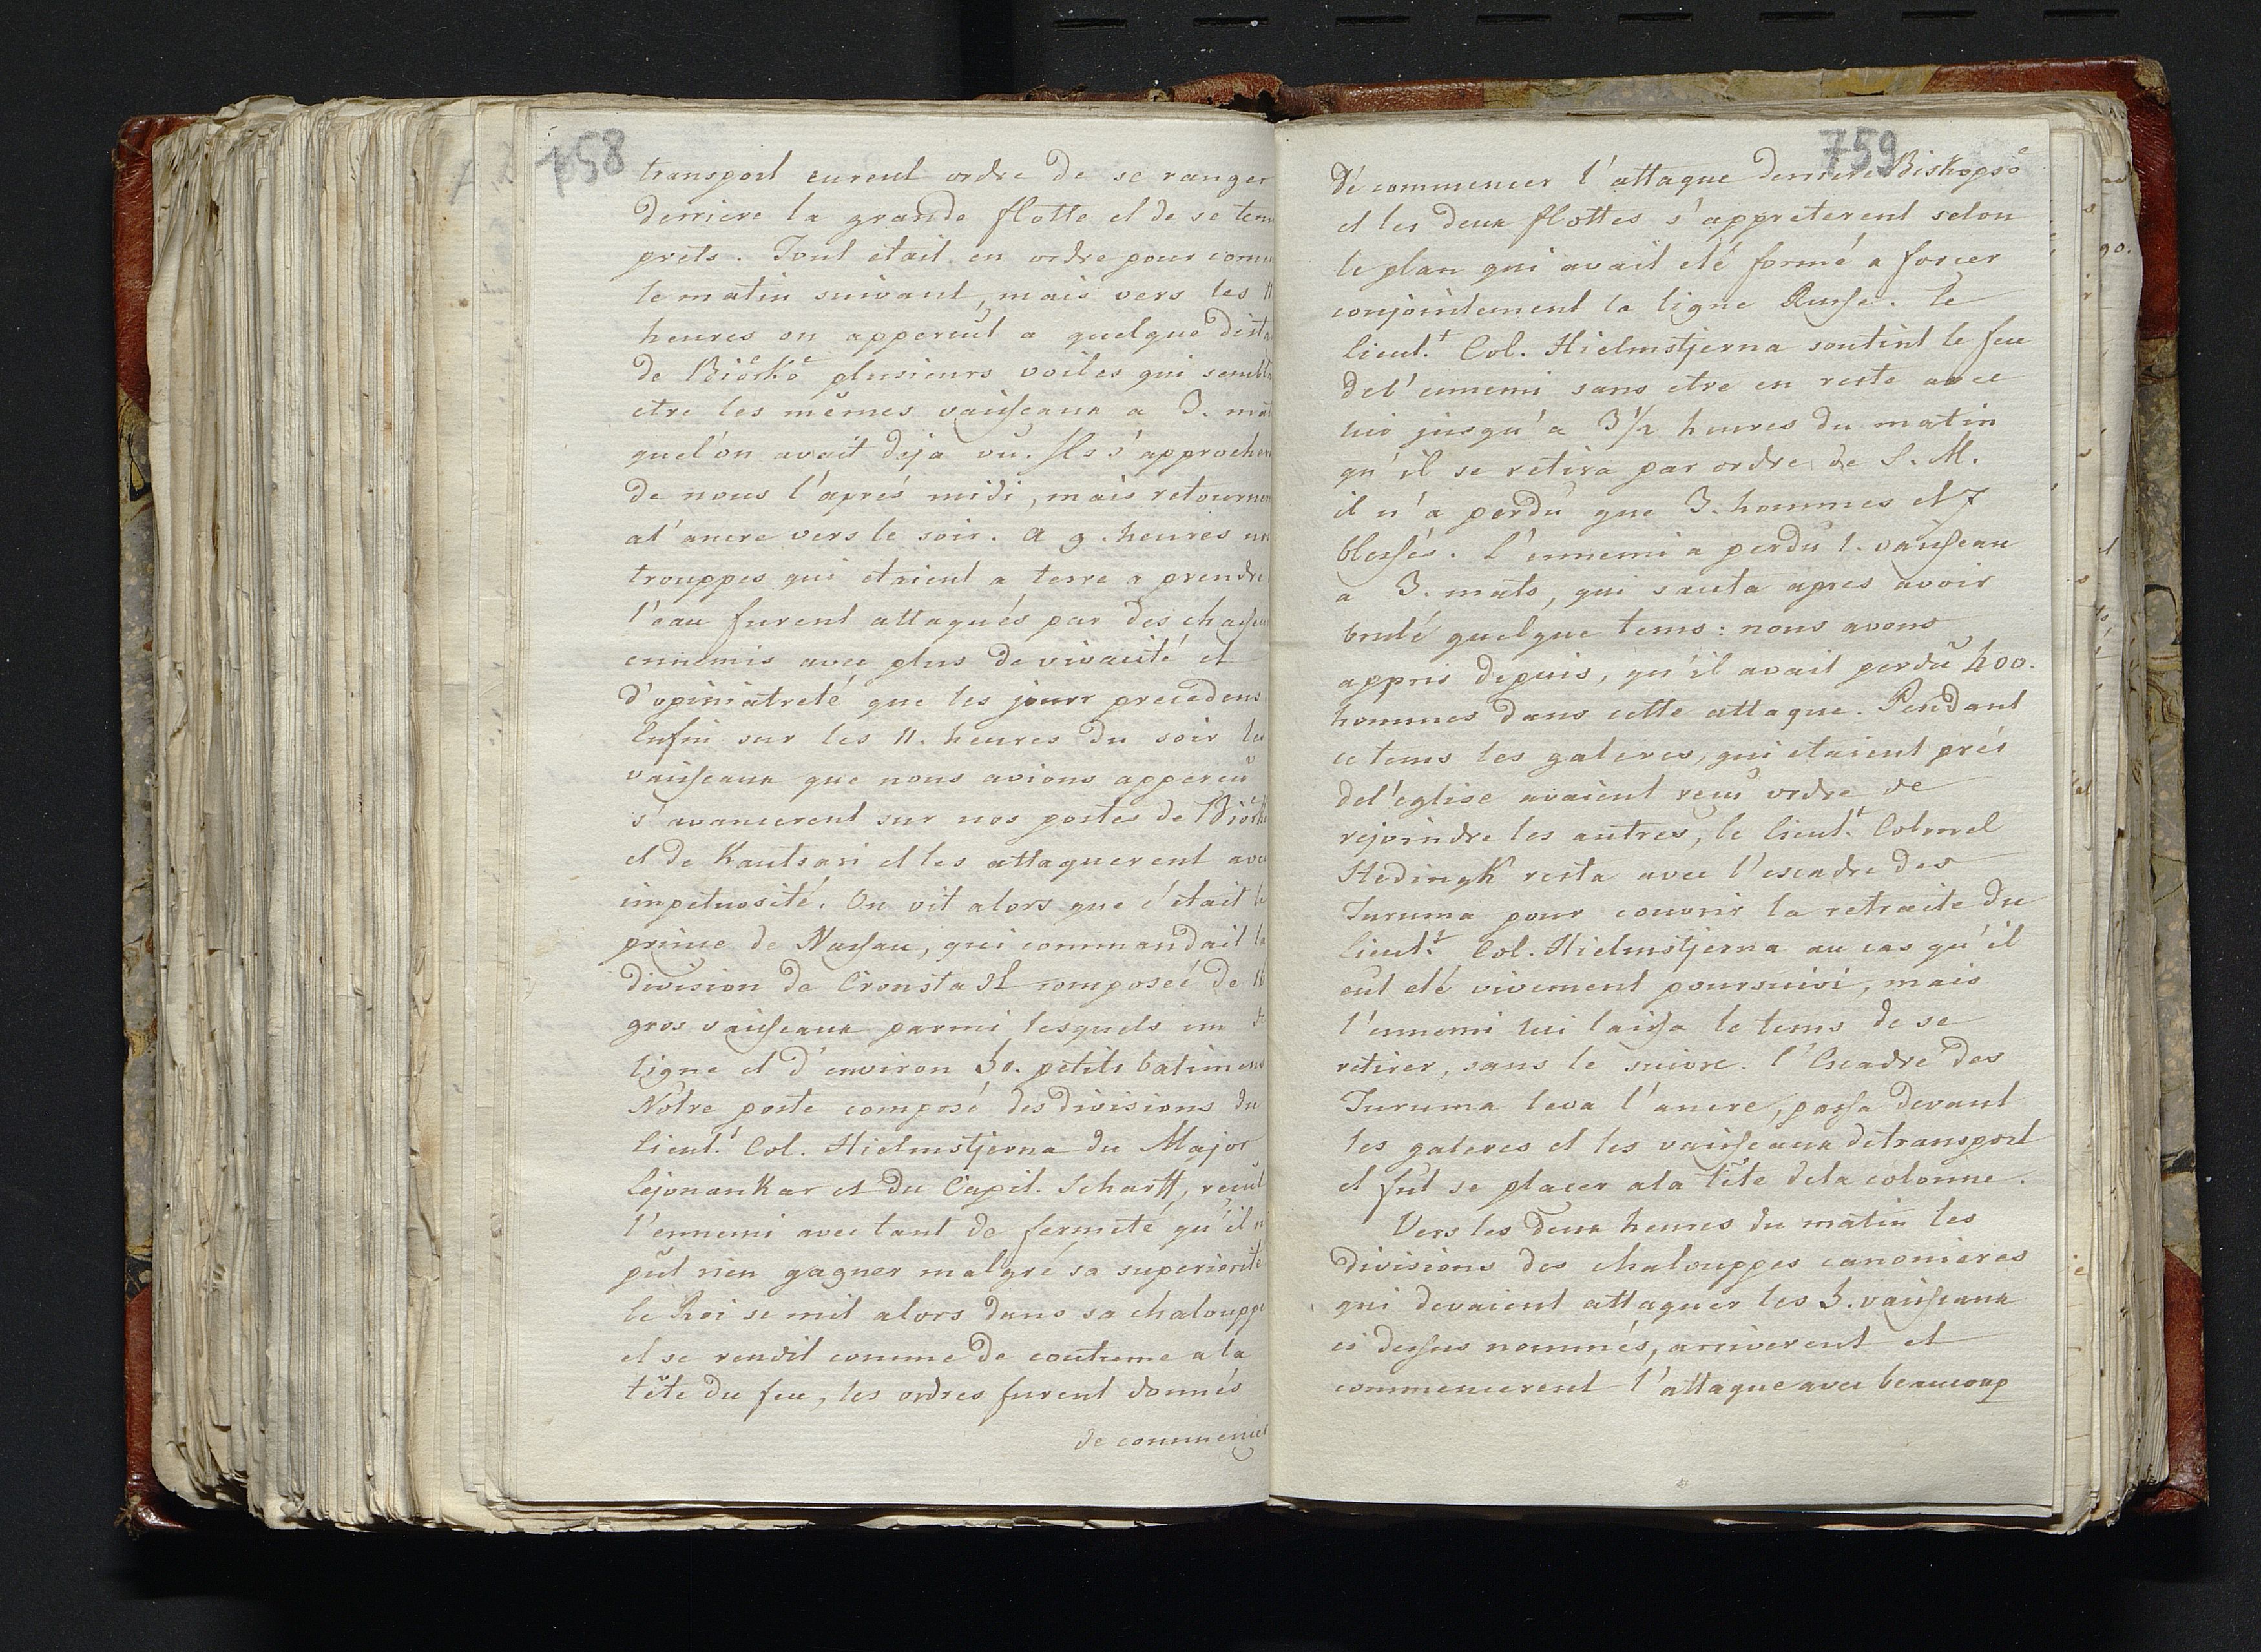 758
transport eurent ordre de se ranger
derriere la grande flotte et de se ten
prets. Tout etait en ordre pour com
le matin suivant, mais vers les 11
heures on appercut a quelque dist
de Biörkö plusieurs voiles qui sembl
etre les mêmes vaisseaux a 3. mat
quel'on avait deja vû. Ils s'approcher
de nous l'aprés midi, mais retourner
al'ancre vers le soir. a 9. heures no
trouppes qui etaient a terre a prendre
l'eau furent attaqués par des chasseu
ennemis avec plus de vivacité et
d'opiniatreté que les jours precedens.
Enfin sur les 11. heures du soir les
vaisseaux que nous avions appercu
s'avancerent sur nos postes de Biörk
et de Kautsari et les attaquerent avec
impetuosité. On vit alors que c'était le
prince de Nassau, qui commandait la
division de Cronstadt composeé de 16
gros vaisseaux parmi lesquels un de
ligne et d'environ 50. petits batimens
Notre poste composé des divisions du
Lieut.t Col. Hielmstjerna du Major
Lejonankar et du Capit. Scharff, recut
l'ennemi avec tant de fermeté, qu'il n
put rien gagner malgré sa superiorité
le Roi se mit alors dans sa chalouppe
et se rendit comme de coutume ala
tête du feu, les ordres furent donnés
de commencer
759
dé commencer l'attaque derriere Biskopsö
et les deux flottes s'appreterent selon
le plan qui avait eté formé a forcer
conjointement la ligne Russe. Le
Lieut.t Col. Hielmstjerna soutint le feu
del'ennemi sans etre en reste avec
lui jusqu'a 3 1/2 heures du matin
qu'il se retira par ordre de S. M.
il n'a perdu que 3. hommes et 7
blessés. L'ennemi a perdu 1. vaisseau
a 3. mats, qui sauta apres avoir
brulé quelque tems: nous avons
appris depuis, qu'il avait perdû 400.
hommes dans cette attaque. Pendant
ce tems les galeres, qui etaient prés
del'eglise avaient reçu ordre de
rejoindre les autres, le Lieut.t Colonel
Stedingk resta avec l'escadre des
Turuma pour couvrir la retraite du
Lieut.t Col. Hielmstjerna au cas qu'il
eut eté vivement poursuivi, mais
l'ennemi lui laissa le tems de se
retirer, sans le suivre. l'Escadre des
Turuma leva l'ancre, passa devant
les galeres et les vaisseaux detransport
et fut se placer ala tête dela colonne.
Vers les deux heures du matin les
divisions des chalouppes canonieres
qui devaient attaquer les 5. vaisseaux
ci dessus nommés, arriverent et
commencerent l'attaque avec beaucoup